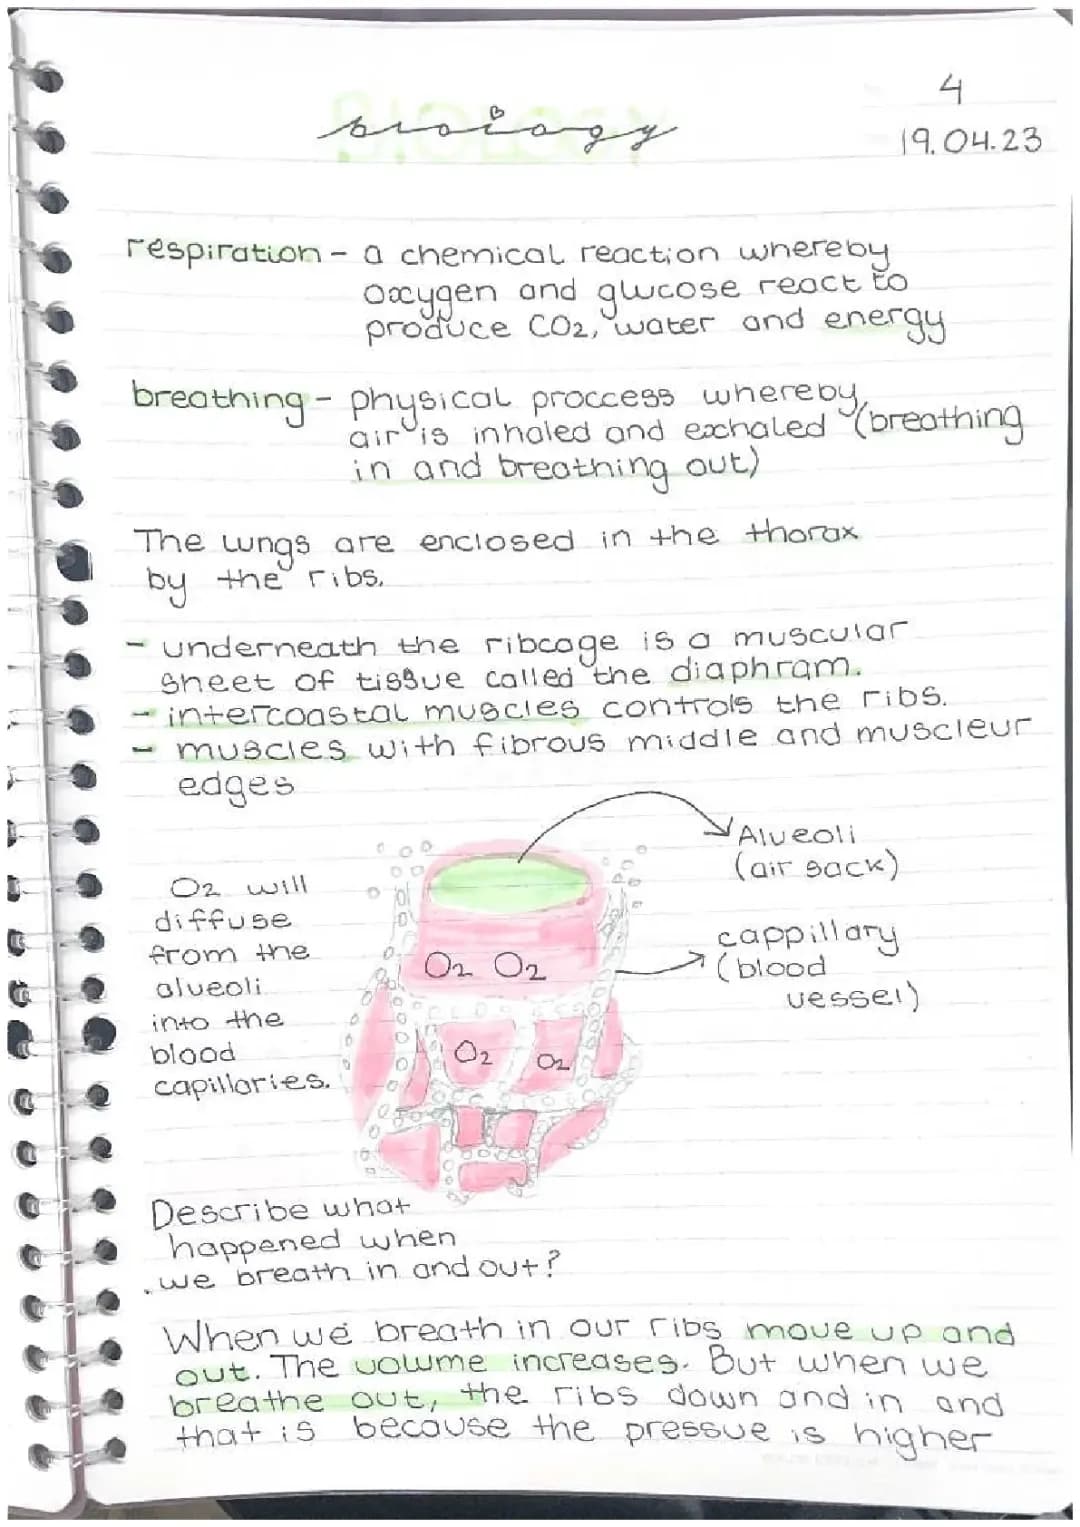 biology
4
19.04.23
respiration - a chemical reaction whereby
oxygen and glucose react to
produce CO2, water and energy
breathing - physical proccess whereby
air is inhaled and exhaled (breathing
in and breathing out)
The lungs are enclosed in the thorax
by the ribs.
- underneath the ribcage is a muscular
sheet of tissue called the diaphram.
- intercoastal muscles controls the ribs.
- muscles with fibrous middle and muscleur
edges
Alveoli
(air sack)
O2 will
diffuse
from the
alveoli
into the
blood
capillaries.
cappillary
(blood
vessel)
O2 O2
O2 O2
Describe what
happened when
we breath in and out?
When we breath in our ribs move up and
out. The volume increases. But when we
breathe out, the ribs down and in and
that is because the pressue is higher